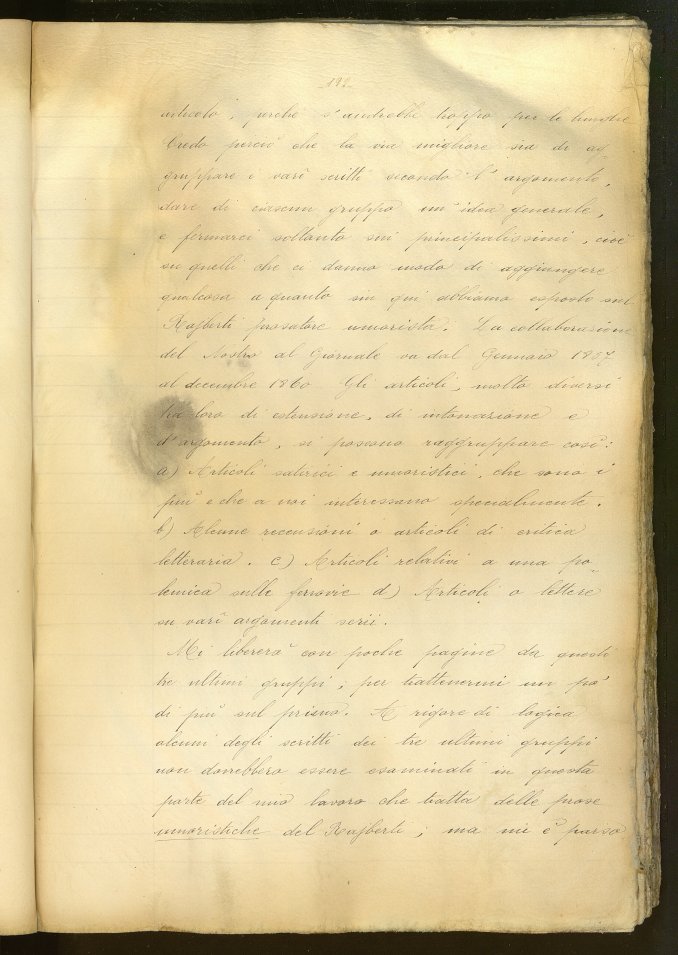 articolo, perchè s'andrebbe troppo per le lunghe
Credo perciò che la via migliore sia di ag-
gruppare i varî scritti secondo l'argomento,
dare di ciascun gruppo un'idea generale,
e fermarci soltanto sui principalissimi, cioè
su quelli che ci danno modo di aggiungere
qualcosa a quanto sin qui abbiamo esposto sul
Rajberti prosatore umorista. La collaborazione
del Nostro al Giornale va dal Gennaio 1857
al decembre 1860 Gli articoli, molto diversi
tra loro di estensione, di intonazione e
d'argomento, si possono raggruppare così:
a) Articoli satirici e umoristici, che sono i
più e che a noi interessano specialmente.
b) Alcune recensioni o articoli di critica
letteraria. c) Articoli relativi a una po-
lemica sulle ferrovie d) Articoli o lettere
su varî argomenti serii.
Mi libererò con poche pagine da questi
tre ultimi gruppi; per trattenermi un po'
di più sul primo. A rigore di logica
alcuni degli scritti dei tre ultimi gruppi
non dovrebbero essere esaminati in questa
parte del mio lavoro che tratta delle prose
umoristiche del Rajberti; ma mi è parso